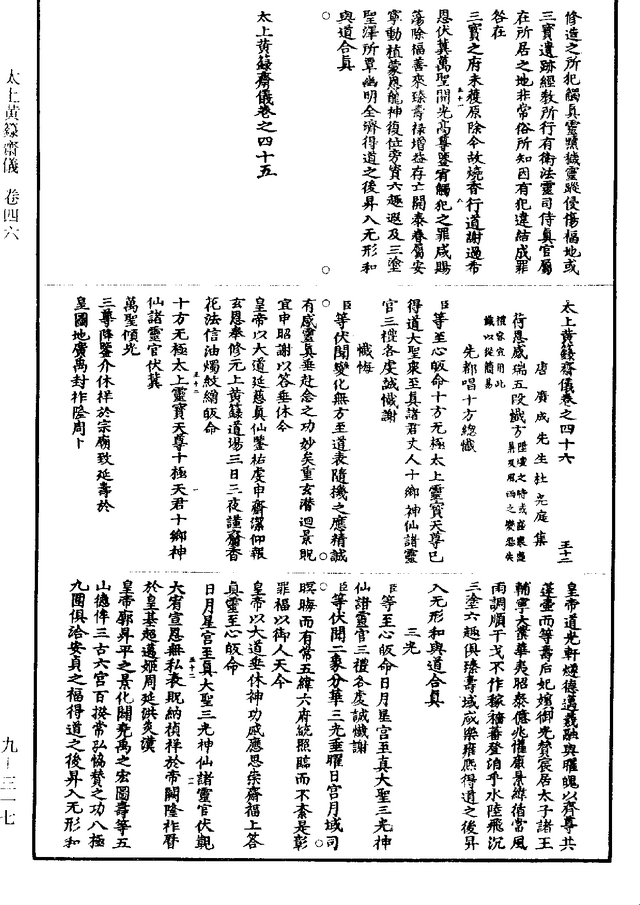 太上黃籙齋儀 卷四六
九—三一七
修造之所犯觸真靈蹟穢靈蹤侵傷福地或
三寶遺跡經教所行有衛法靈司侍真官屬
在所居之地非常俗所知因有犯違結成罪
咎在
三寶之府未獲原除今故燒香行道謝過希
恩伏冀萬聖開光高尊鑒宥觸犯之罪咸賜
蕩除福善來臻壽祿增益存亡開泰眷屬安
寧動植蒙恩龍神復位旁資六趣遐及三塗
聖澤所覃幽明全濟得道之後昇入无形和
與道合真
太上黃籙齋儀卷之四十五
太上黃籙齋儀卷之四十六 王十二
唐廣成先生杜光庭集
荷恩感瑞五段懺方
先都唱十方總懺
臣等至心皈命十方无極太上靈寶天尊已
得道大聖衆至真諸君丈人十鄉神仙諸靈
官三禮各虔誠懺謝
懺悔
臣等伏聞變化無方至道表隨機之應精誠
有感靈真垂赴念之功妙矣重玄潛迴景貺
宜申昭謝以答垂休今
皇帝以大道延慈真仙鑒祐虔申齋潔仰報
玄恩恭修元上黃籙道場三日三夜謹齎香
花法信油燭紋繒皈命
十方无極太上靈寶天尊十極天君十鄉神
仙諸靈官伏冀
萬聖傾光
三尊降鑒介休祥於宗廟致延壽於
皇圖地廣萬封祚隆周卜
皇帝道光軒燧德邁羲融與曜魄以齊尊共
蓬壺而等壽后妃嬪御光贊宸居太子諸王
輔寧大業華夷昭泰億兆懽康景緯循常風
雨調順干戈不作稼穡蕃登洎乎水陸飛沉
三塗六趣俱臻壽域咸樂雍熙得道之後昇
入无形和與道合真
三光
臣等至心皈命日月星宮至真大聖三光神
仙諸靈官三禮各虔誠懺謝
臣等伏聞二象分華三光垂曜日宮月域司
暝晦而有常五緯六府統照臨而不紊是彰
罪福以御人天今
皇帝以大道垂休神功感應思崇齋福上答
真靈至心皈命
日月星宮至真大聖三光神仙諸靈官伏覬
大宥宣恩無私表貺納禎祥於帝闕隆祚曆
於皇基超邁姬周延洪炎漢
皇帝廓昇平之景化闢堯禹之宏圖壽等五
山德侔三古六宮百揆常弘恊贊之功八極
九圍俱洽安貞之福得道之後昇入无形和